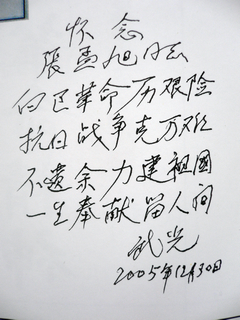 怀念
張孟旭同志
白区革命历艰险
抗日战争克万难
不遗余力建祖國
一生奉献留人间
武光
2005年12月30日